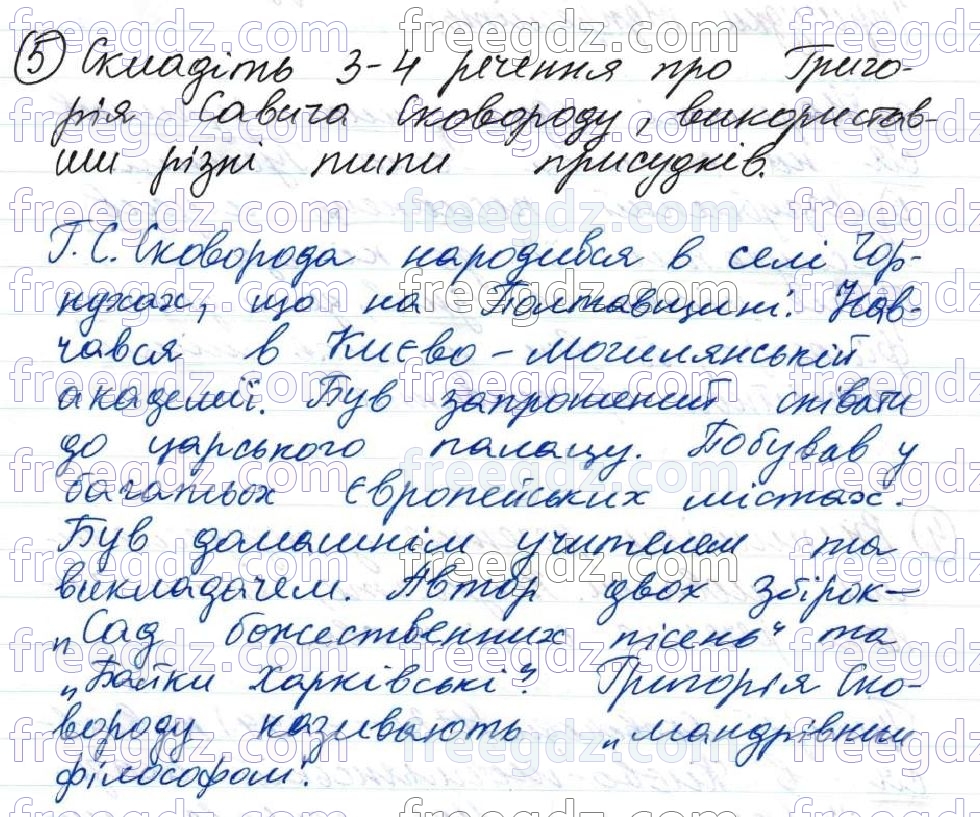 ⑤ Складіть 3-4 речення про Григо-
рія Савича Сковороду, використав-
ши різні типи присудків.
Г.С. Сковорода народився в селі Чор-
нухах, що на Полтавщині. Нав-
чався в Києво-могилянській
академії. Був запрошений співати
до царського палацу. Побував у
багатьох європейських містах.
Був домашнім учителем та
викладачем. Автор двох збірок –
„Сад божественних пісень“ та
„Байки Харківські“. Григорія Ско-
вороду називають „мандрівним
філософом“.